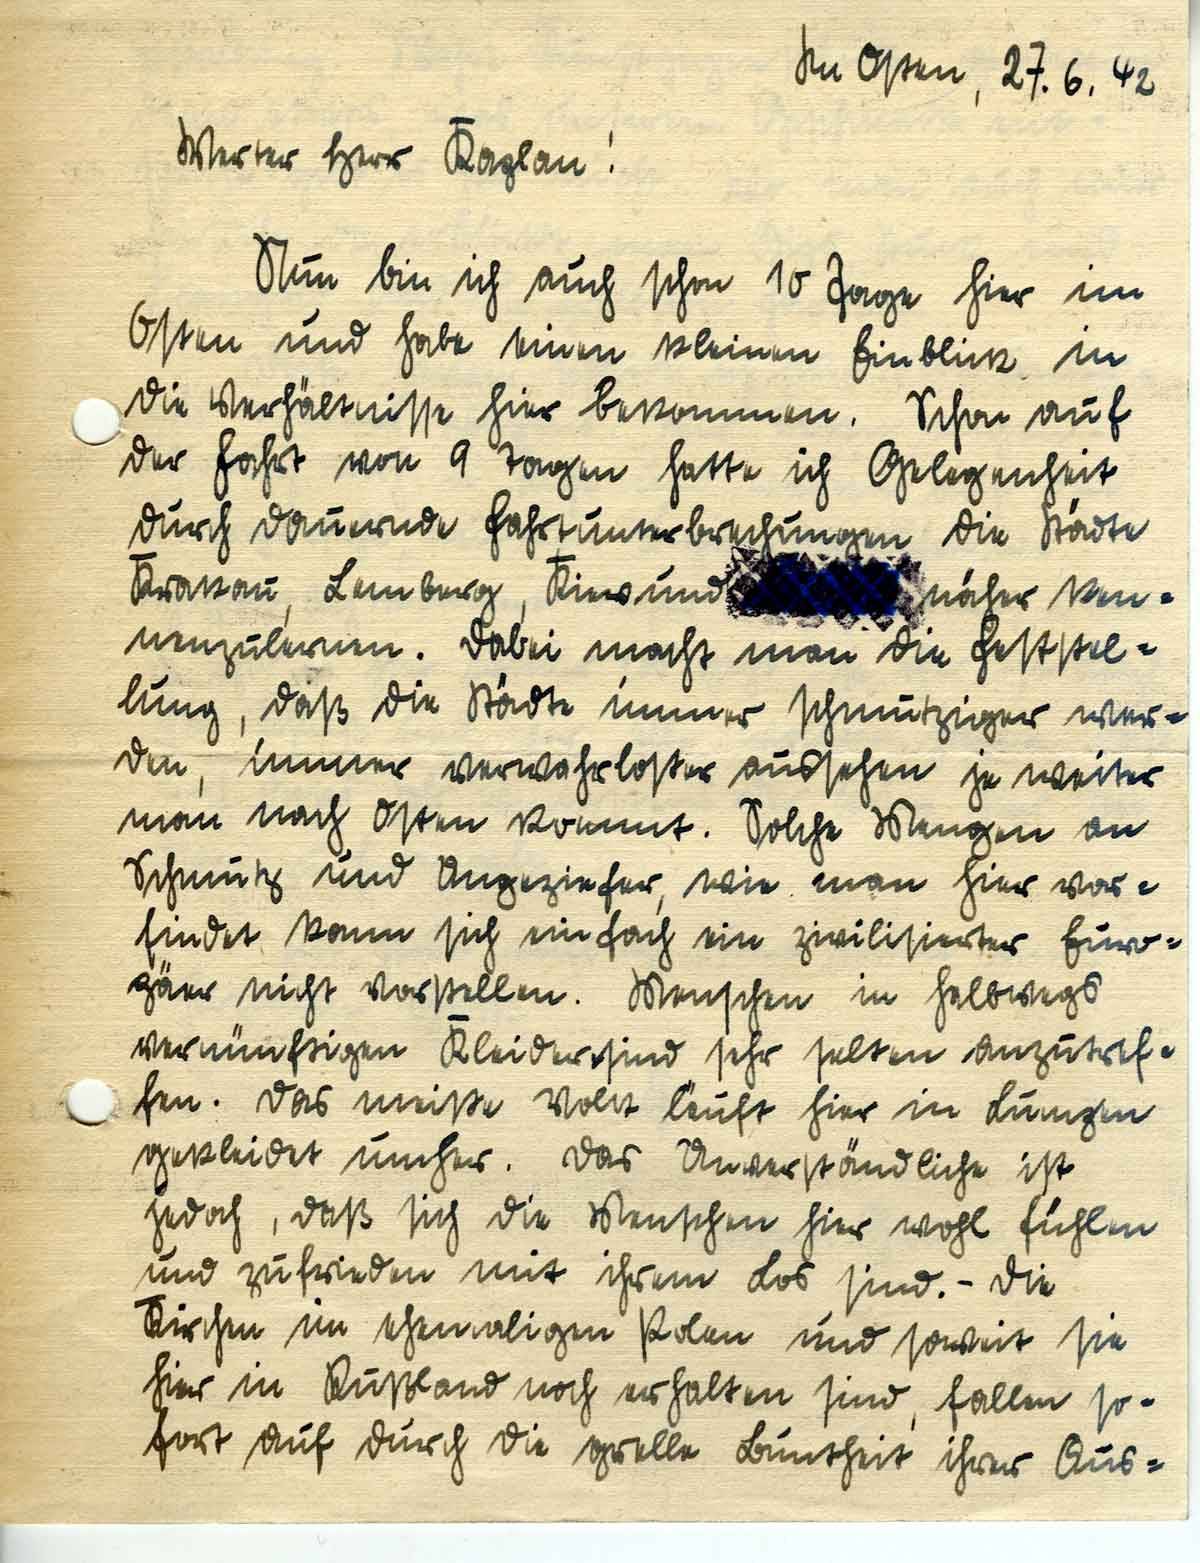 Im Osten, 27.6.42
Werter Herr Kaplan!
Nun bin ich auch schon 10 Tage hier im
Osten und habe einen kleinen Einblick in
die Verhältnisse hier bekommen. Schon auf
der Fahrt von 9 Tagen hatte ich Gelegenheit
durch dauernde Fahrtunterbrechungen die Städte
Krakau, Lemberg, Kiew und näher ken=
nenzulernen. Dabei macht man die Feststel=
lung, daß die Städte immer schmutziger wer=
den, immer verwahrloster aussehen je weiter
man nach Osten kommt. Solche Mengen an
Schmutz und Ungeziefer, wie man hier vor=
findet kann sich einfach ein zivilisierter Euro=
päer nicht vorstellen. Menschen in halbwegs
vernünftigen Kleidern sind sehr selten anzutref=
fen. Das meiste Volk läuft hier in Lumpen
gekleidet umher. Das Unverständliche ist
jedoch, daß sich die Menschen hier wohl fühlen
und zufrieden mit ihrem Los sind.- Die
Kirchen im ehemaligen Polen und soweit sie
hier in Rußland noch erhalten sind, fallen so=
fort auf durch die grelle Buntheit ihrer Aus=